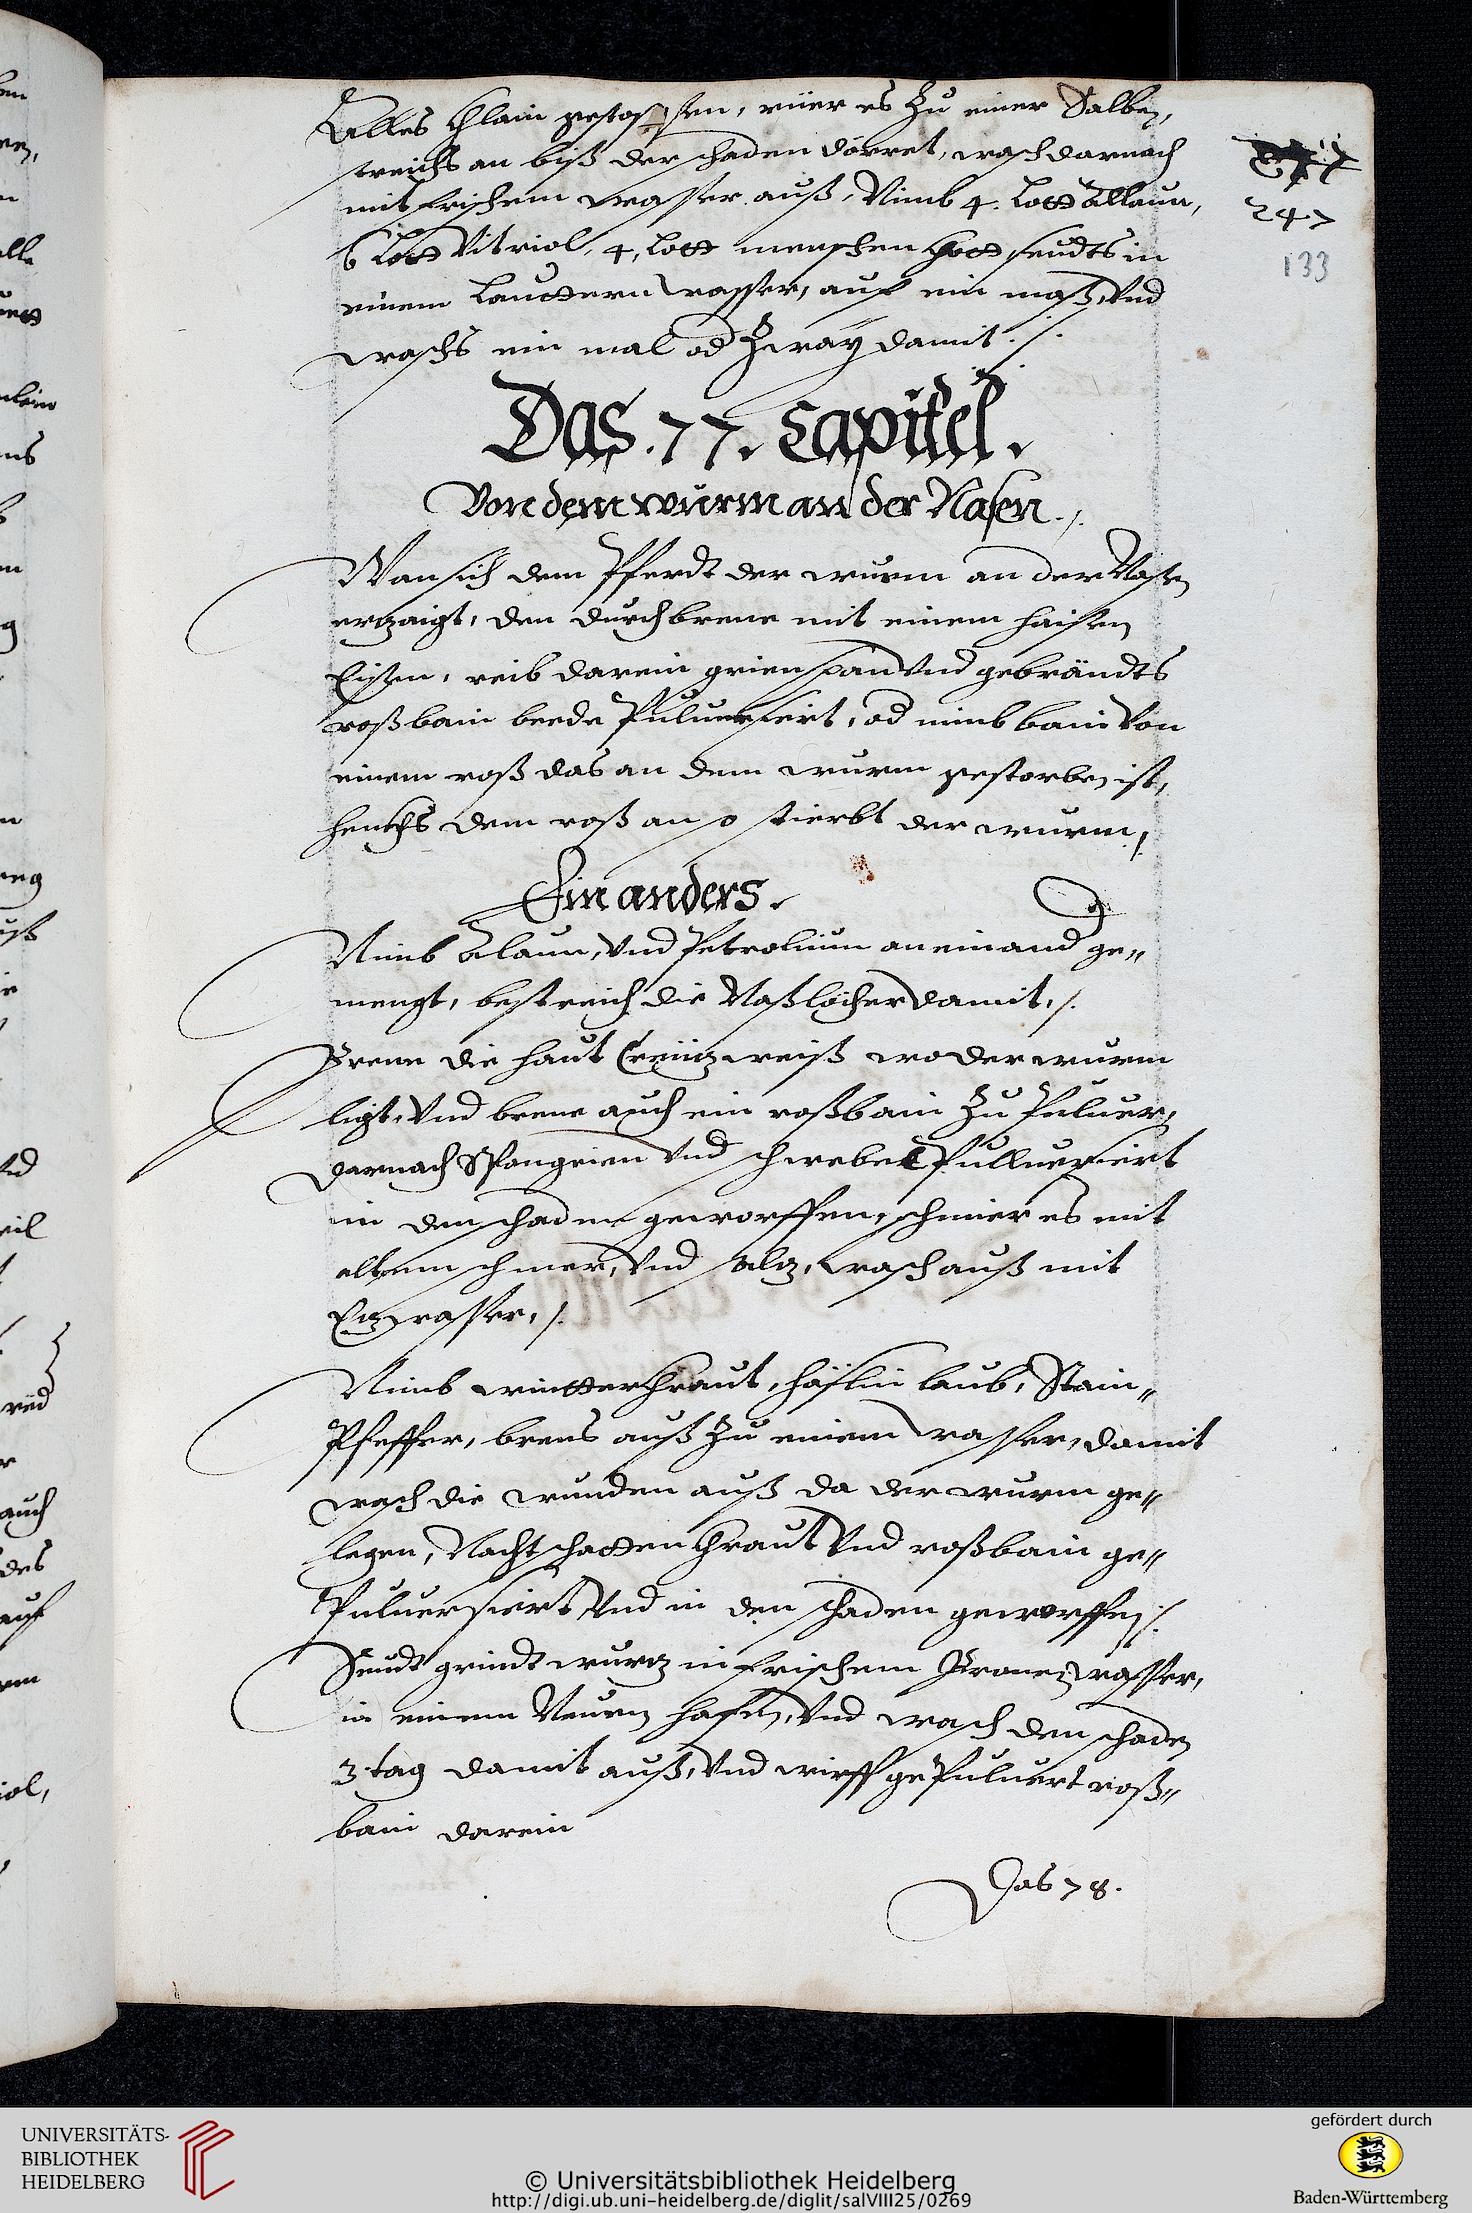 alles Khlain gestossen, rüer es Zu einer Salben,
streichs an biß der schaden dörret, wasch darnach
mit frischem wasser auß, Nimb 4. Lott Allaun,
6 Lott Vitriol, 4, Lott menschen Hott seudts in
einem Lautternwasser, auf ein maß, Vnd
waschs ein mal od Zwaÿ damit ./.
247
133
Das .77. Capitel.
Von dem wurm an der Nasen ./.
Wan sich dem Pferdt der wurm an der Nasen
erzaigt, den durchbrenne mit einem haissen
Eisen, reib darein grienspan Vnd gebrändts
roßbain beede Puluerisiert, od nimb bain Von
einem roß das an dem wurm gestorben ist,
henckhs dem roß an so stierbt der wurm ./.
Ein anders.
Nimb Alaun, Vnd Petrolium an einand ge„
mengt, bestreich die Naßlöcher damit ./.
Prenn die haut Creützweiß wo der wurm
ligt, Vnd brenne auch ein roßbain Zu Puluer,
darnach Spangrien Vnd schwebel Pulluerisiert
in den schaden geworffen, schmier es mit
altem schmer, Vnd Salz, wasch auß mit
Ezwasser ./.
Nimb wintterkhraut, häslin laub, Stain„
Pfeffer, brens auß Zu einem wasser, damit
wasch die wunden auß da der wurm ge„
legen, Nachtschatten khraut Vnd roßbain ge„
Puluersiert Vnd in den schaden geworffen ./.
Seudt grindtwurz in frischem Pronenwasser,
in einem Neuen hafen, Vnd wasch den schaden
3 tag damit auß, Vnd wirff gePuluert roß„
bain darein
Das 78.
UNIVERSITÄTS-
BIBLIOTHEK
HEIDELBERG
© Universitätsbibliothek Heidelberg
http://digi.ub.uni-heidelberg.de/diglit/salVIII25/0269
gefördert durch
Baden-Württemberg